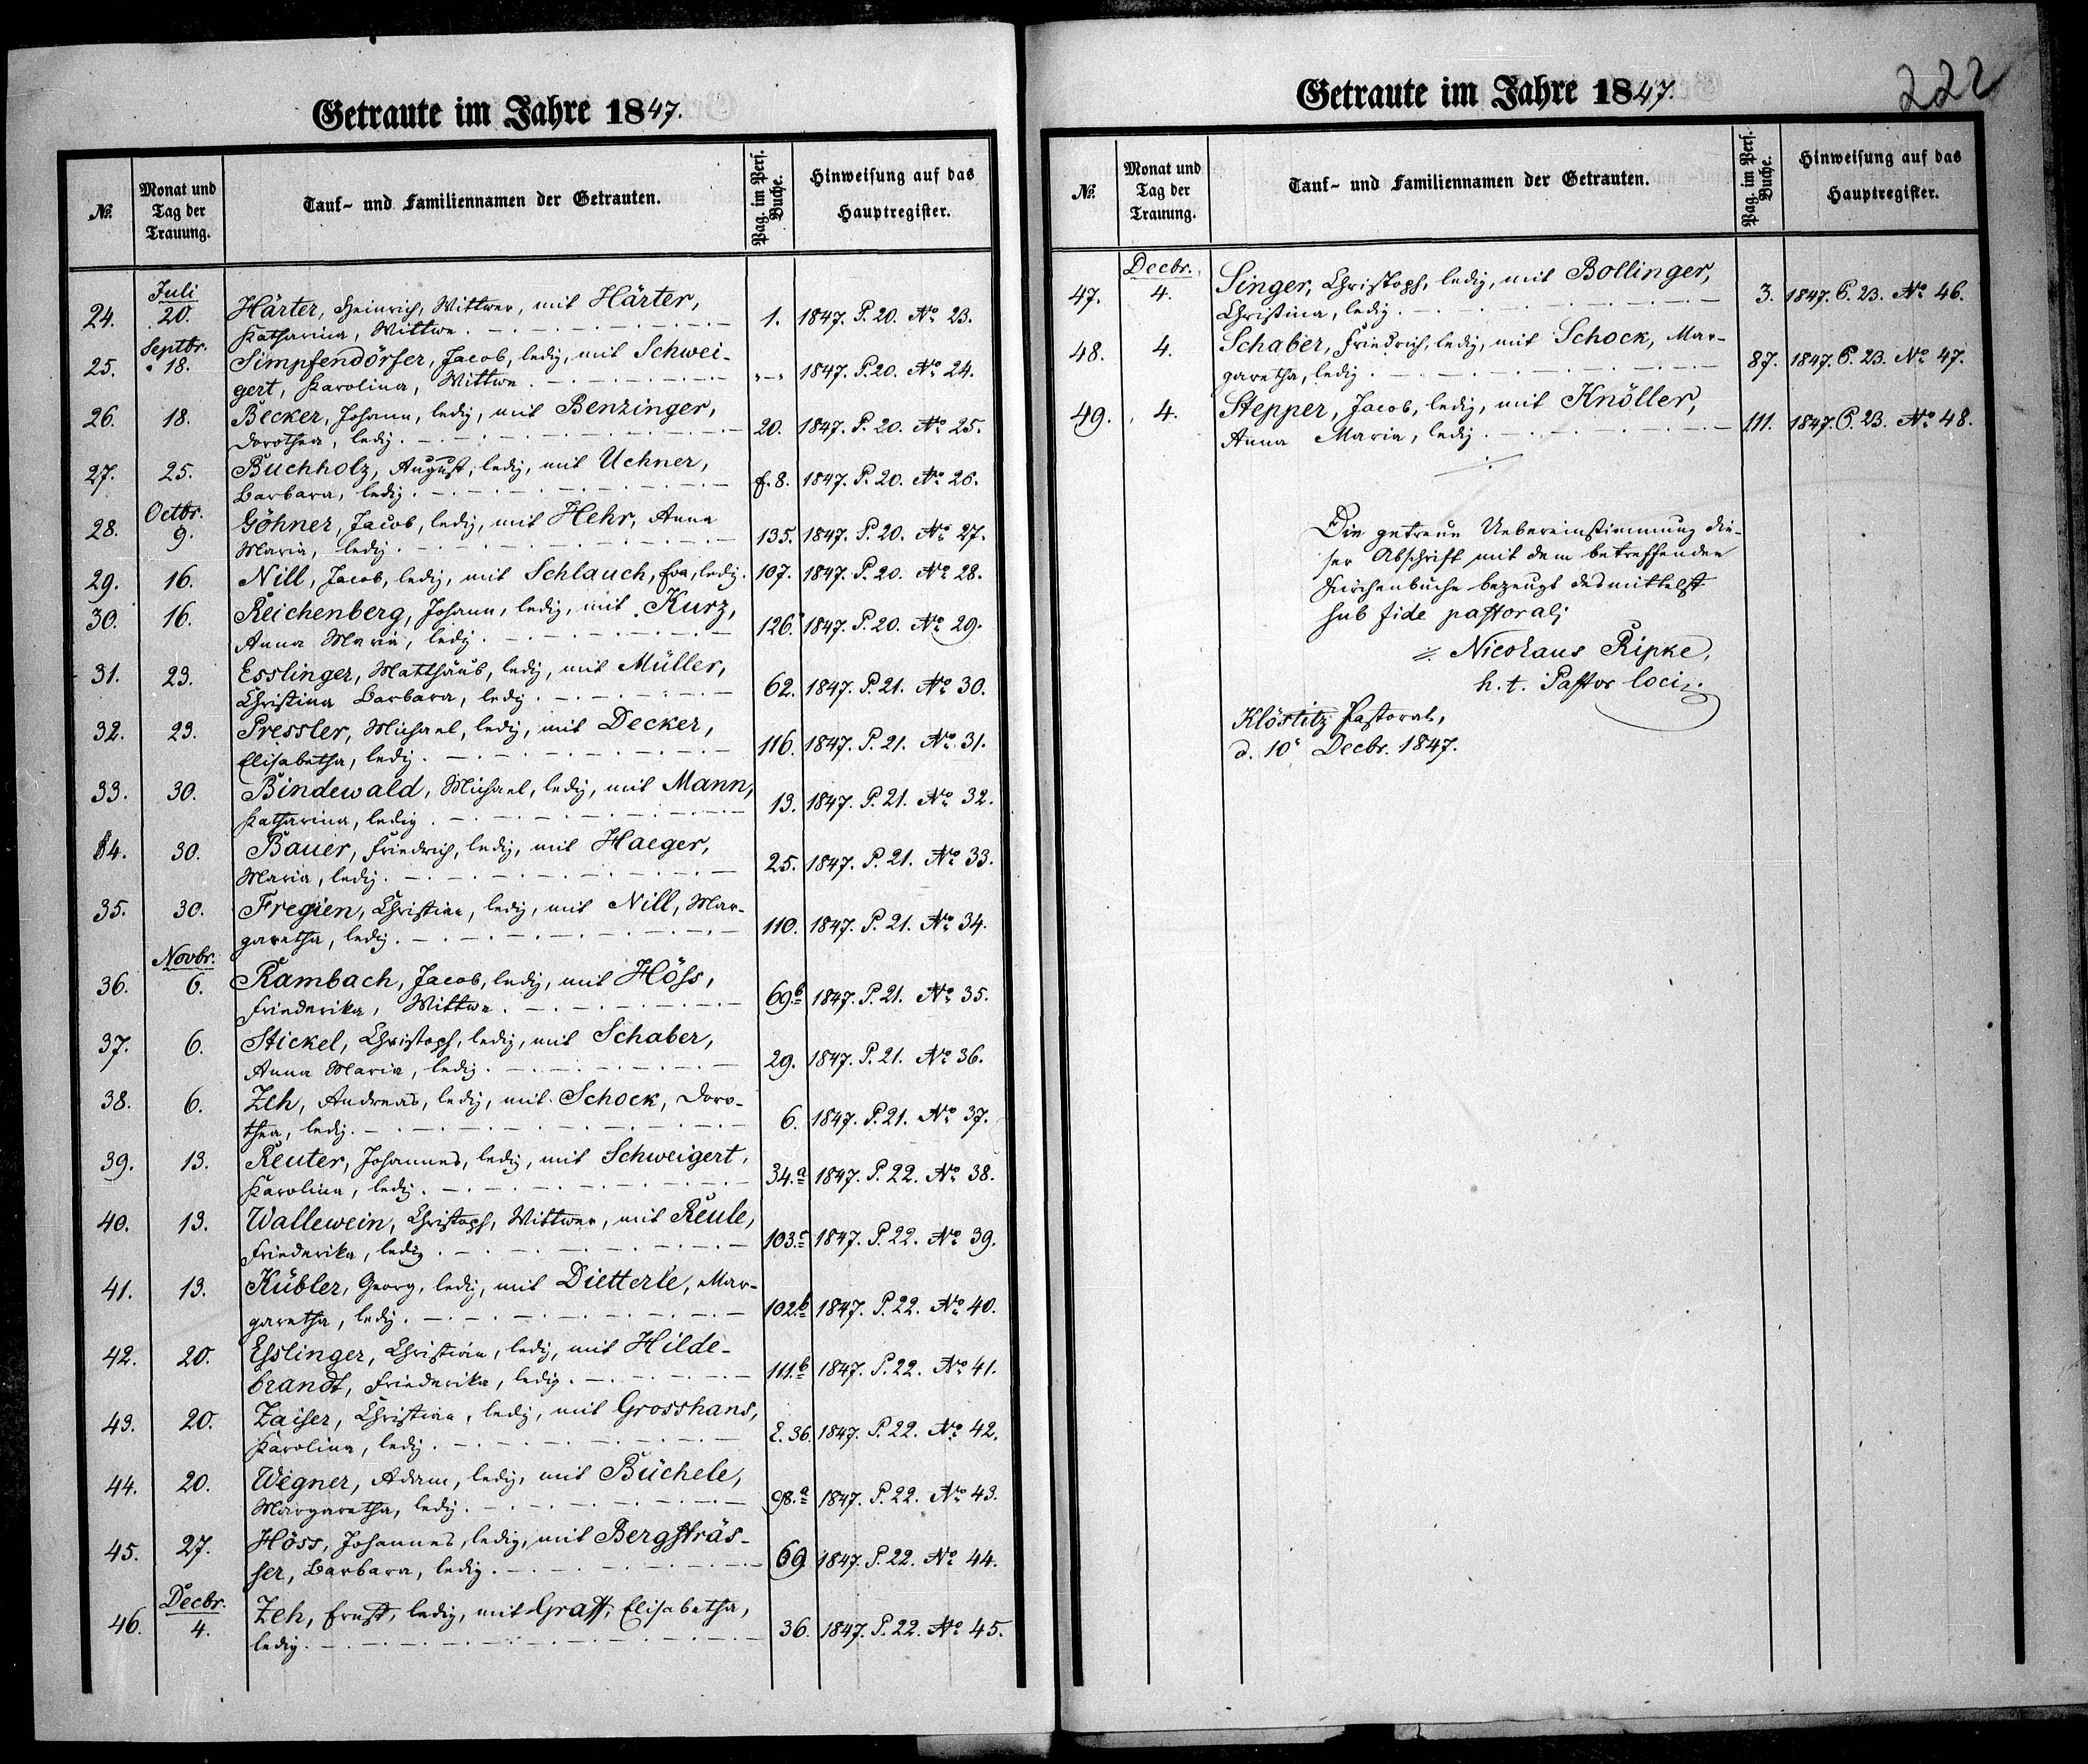 Getraute im Jahre 1847.
№ Monat und Tag der Trauung. Tauf- und Familiennamen der Getrauten. Pag. im Pers. Buche. Hinweisung auf das Hauptregister.
Juli
24. 20. Härter, Heinrich, Wittwer, mit Härter,
Katharina, Wittwe. 1. 1847. P. 20. No 23.
Septbr.
25. 18. Simpfendörfer, Jacob, ledig, mit Schwei-
gert, Karolina, Wittwe. „-„ 1847. P. 20. No 24.
26. 18. Becker, Johann, ledig, mit Benzinger,
Dorothea, ledig. 20. 1847. P. 20. No 25.
27. 25. Buchholz, August, ledig, mit Uchner,
Barbara, ledig. f. 8. 1847. P. 20. No 26.
Octbr.
28. 9. Göhner, Jacob, ledig, mit Hehr, Anna
Maria, ledig. 135. 1847. P. 20. No 27.
29. 16. Nill, Jacob, ledig, mit Schlauch, Eva, ledig. 107. 1847. P. 20. No 28.
30. 16. Reichenberg, Johann, ledig, mit Kurz,
Anna Maria, ledig. 126. 1847. P. 20. No 29.
31. 23. Esslinger, Matthäus, ledig, mit Müller,
Christina Barbara, ledig. 62. 1847. P. 21. No 30.
32. 23. Pressler, Michael, ledig, mit Decker,
Elisabetha, ledig. 116. 1847. P. 21. No 31.
33. 30. Bindewald, Michael, ledig, mit Mann,
Katharina, ledig. 13. 1847. P. 21. No 32.
34. 30. Bauer, Friedrich, ledig, mit Haeger,
Maria, ledig. 25. 1847. P. 21. No 33.
35. 30. Fregien, Christian, ledig, mit Nill, Mar-
garetha, ledig. 110. 1847. P. 21. No 34.
Novbr.
36. 6. Rambach, Jacob, ledig, mit Höss,
Friederika, Wittwe. 69.b 1847. P. 21. No 35.
37. 6. Stickel, Christoph, ledig, mit Schaber,
Anna Maria, ledig. 29. 1847. P. 21. No 36.
38. 6. Zeh, Andreas, ledig, mit Schock, Doro-
thea, ledig. 6. 1847. P. 21. No 37.
39. 13. Reuter, Johannes, ledig, mit Schweigert,
Karolina, ledig. 34.a 1847. P. 22. No 38.
40. 13. Wallewein, Christoph, Wittwer, mit Reule,
Friederika, ledig. 103.c 1847. P. 22. No 39.
41. 13. Kübler, Georg, ledig, mit Dietterle, Mar-
garetha, ledig. 102.b 1847. P. 22. No 40.
42. 20. Esslinger, Christian, ledig, mit Hilde-
brandt, Friederika, ledig. 111.b 1847. P. 22. No 41.
43. 20. Zaiser, Christian, ledig, mit Grosshans,
Karolina, ledig. E. 36. 1847. P. 22. No 42.
44. 20. Wegner, Adam, ledig, mit Büchele,
Margaretha, ledig. 98.a 1847. P. 22. No 43.
45. 27. Höss, Johannes, ledig, mit Bergsträs-
ser, Barbara, ledig. 69. 1847. P. 22. No 44.
Decbr.
46. 4. Zeh, Ernst, ledig, mit Graff, Elisabetha,
ledig. 36. 1847. P. 22. No 45.
222
Getraute im Jahre 1847.
№ Monat und Tag der Trauung. Tauf- und Familiennamen der Getrauten. Pag. im Pers. Buche. Hinweisung auf das Hauptregister.
Decbr.
47. 4. Singer, Christoph, ledig, mit Bollinger,
Christina, ledig. 3. 1847. P. 23. No 46.
48. 4. Schaber, Friedrich, ledig, mit Schock, Mar-
garetha, ledig. 87. 1847. P. 23. No 47.
49. 4. Stepper, Jacob, ledig, mit Knöller,
Anna Maria, ledig. 111. 1847. P. 23. No 48.
Die getreue Uebereinstimmung die-
ser Abschrift mit dem betreffenden
Kirchenbuche bezeugt desmittelst
sub fide pastorali
Nicolaus Ripke,
h. t. Pastor loci.
Klöstitz Pastorat,
d. 10 Decbr. 1847.